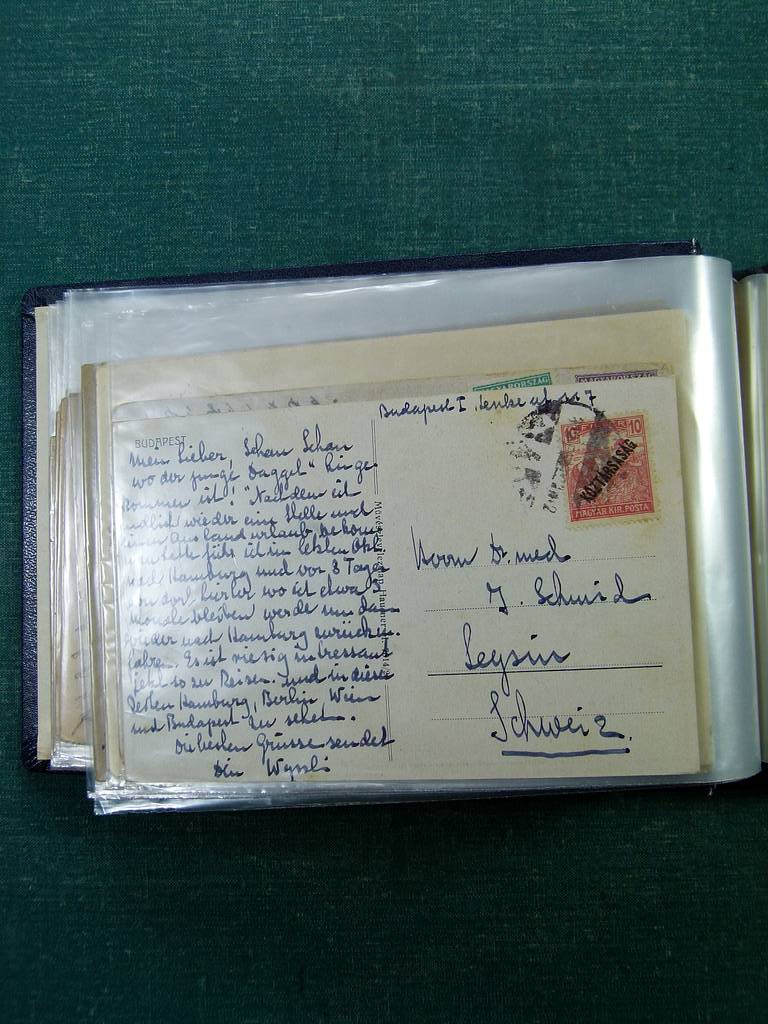 MAGYARORSZÁG
MAGYARORSZÁG
Budapest I
BUDAPEST
10 10
KÖZTÁRSASÁG
MAGYAR KIR. POSTA
Mein Lieber, Schau Schau
wo der junge Daggel" hinge
kommen ist! "Nachdem ich
endlich wieder eine Stelle und
einen Auslandurlaub bekom
ich im letzten Okt.
nach Hamburg und vor 3 Tagen
von dort hierher wo ich etwa 3
Monate bleiben werde um dan
wieder nach Hamburg zurückzu
fahren. Es ist riesig interessant
jetzt so zu Reisen. und in diesen
Zeiten Hamburg, Berlin Wien
und Budapest zu sehen.
Die besten Grüsse sendet
Dein Wyssli
Herrn Dr. med
J. Schmid
Leysin
Schweiz.